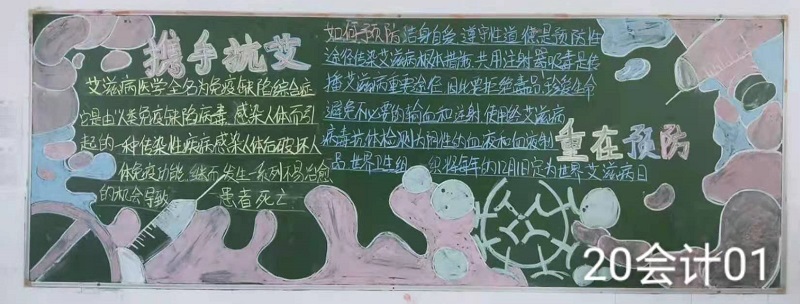 携手抗艾
艾滋病医学全名为免疫缺陷综合症
它是由人类免疫缺陷病毒感染人体而引
起的一种传染性疾病感染人体后破坏人
体免疫功能,继而发生一系列不易治愈
的机会导致 患者死亡
如何预防 洁身自爱、遵守性道德是预防性
途径传染艾滋病根本措施 共用注射器吸毒是传
播艾滋病重要途径 因此要拒绝毒品 珍爱生命
避免不必要的输血和注射 使用经艾滋病
病毒抗体检测为阴性的血液和血液制
品 世界卫生组织将每年的12月1日定为世界艾滋病日
重在预防
20会计01